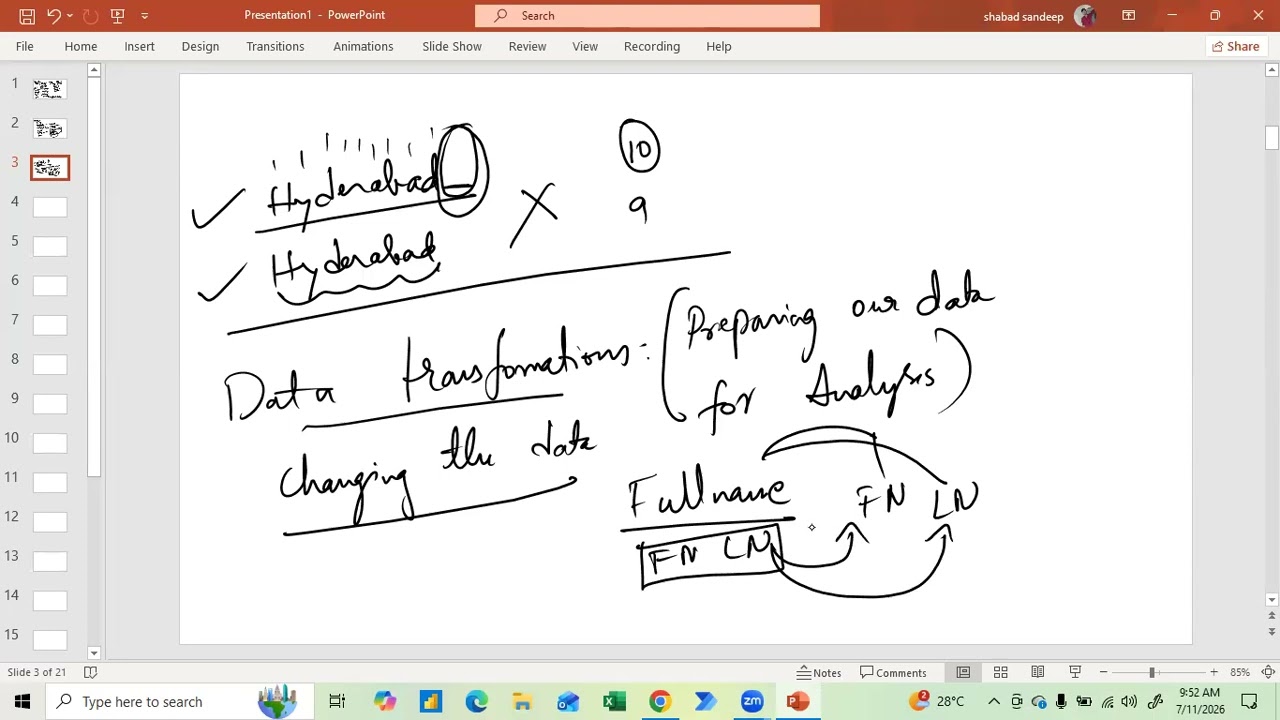 Presentation1 - PowerPoint
Search
shabad sandeep
File Home Insert Design Transitions Animations Slide Show Review View Recording Help
Share
1
2
3
4
5
6
7
8
9
10
11
12
13
14
15
Hyderabad_ 10
Hyderabad X 9
Data transfomations: (Preparing our data
for Analysis)
changing the data
Fullname FN LN
FN LN
Slide 3 of 21
Notes Comments 85%
Type here to search
2
28°C
9:52 AM
7/11/2026